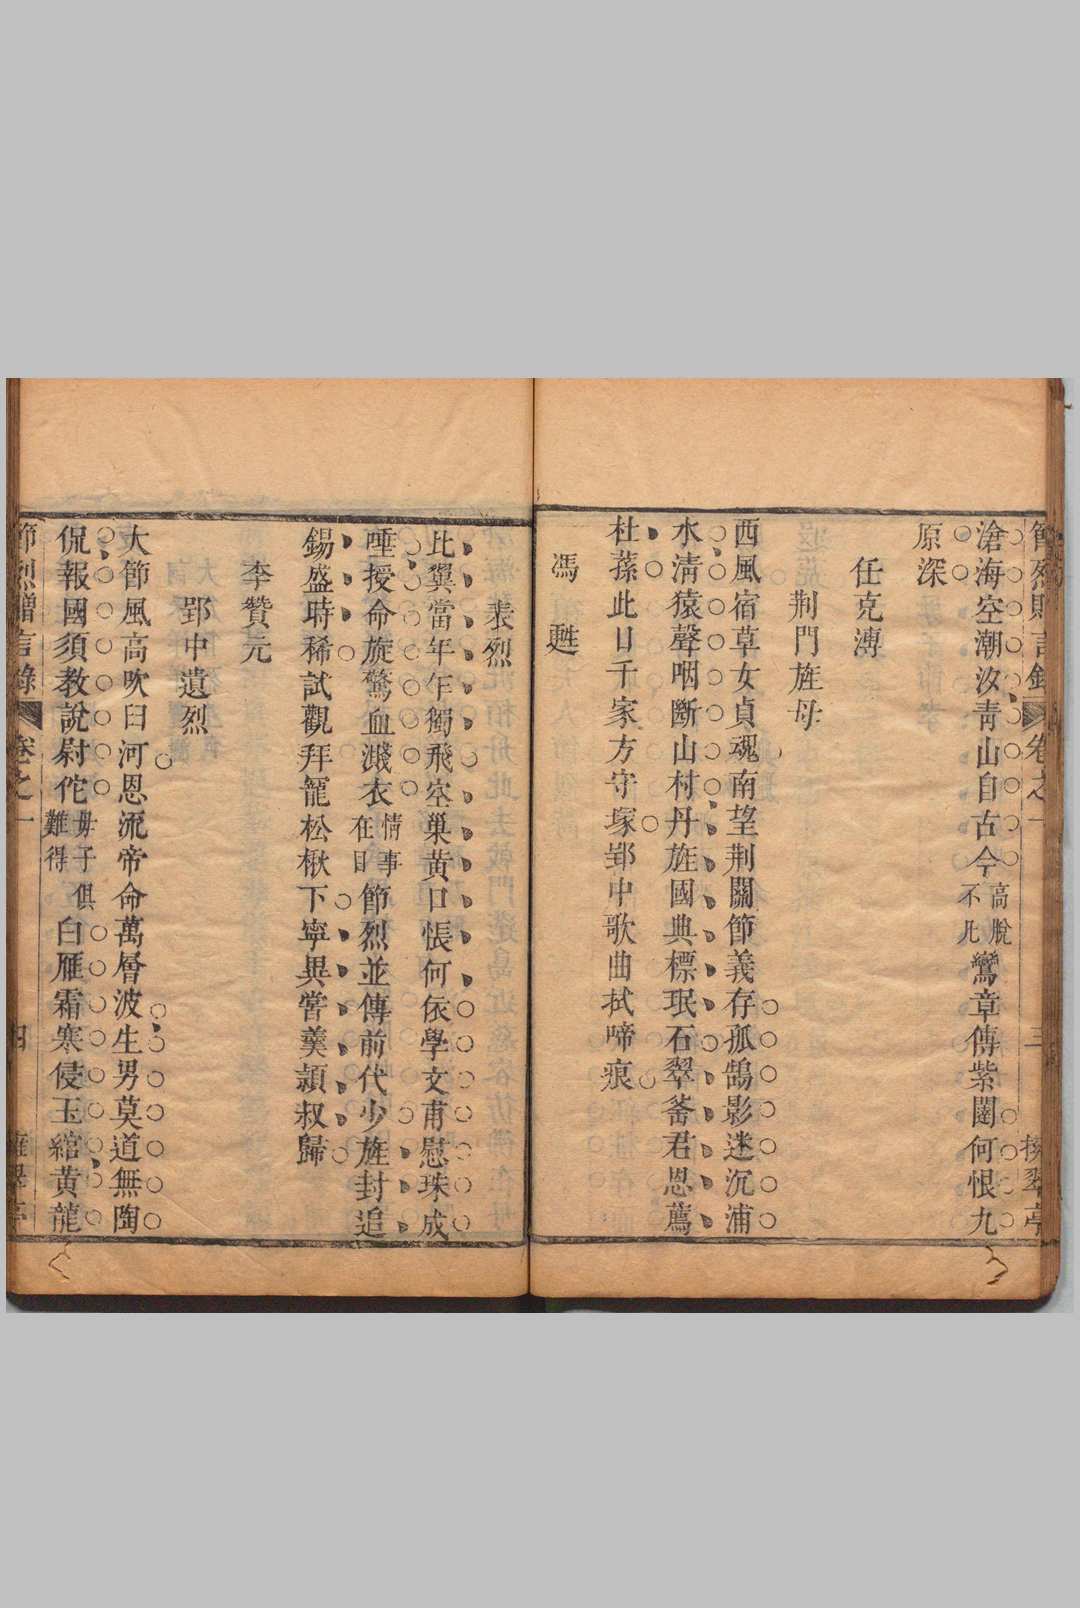 節烈贈言錄 卷之一 三 挹翠亭
滄海空潮汝靑山自古今高脫不凡鸞章傳紫闥何恨九
原深
任克溥
荆門旌母
西風宿草女貞魂南望荆關節義存孤鵠影迷沉浦
水清猿聲咽斷山村丹旌國典標珉石翠䇹君恩薦
杜蓀此日千家方守塚郢中歌曲拭啼痕
馮甦
表烈
比翼當年乍獨飛空巢黄口悵何依學文甫慰珠成
唾授命旋驚血濺衣情事在目節烈並傳前代少旌封追
錫盛時稀試觀拜寵松楸下寧異嘗羹頴叔歸
李贊元
郢中遺烈
大節風高吹臼河恩流帝命萬層波生男莫道無陶
侃報國須教說尉佗母子俱難得白雁霜寒侵玉綰黄龍
節烈贈言錄 卷之一 四